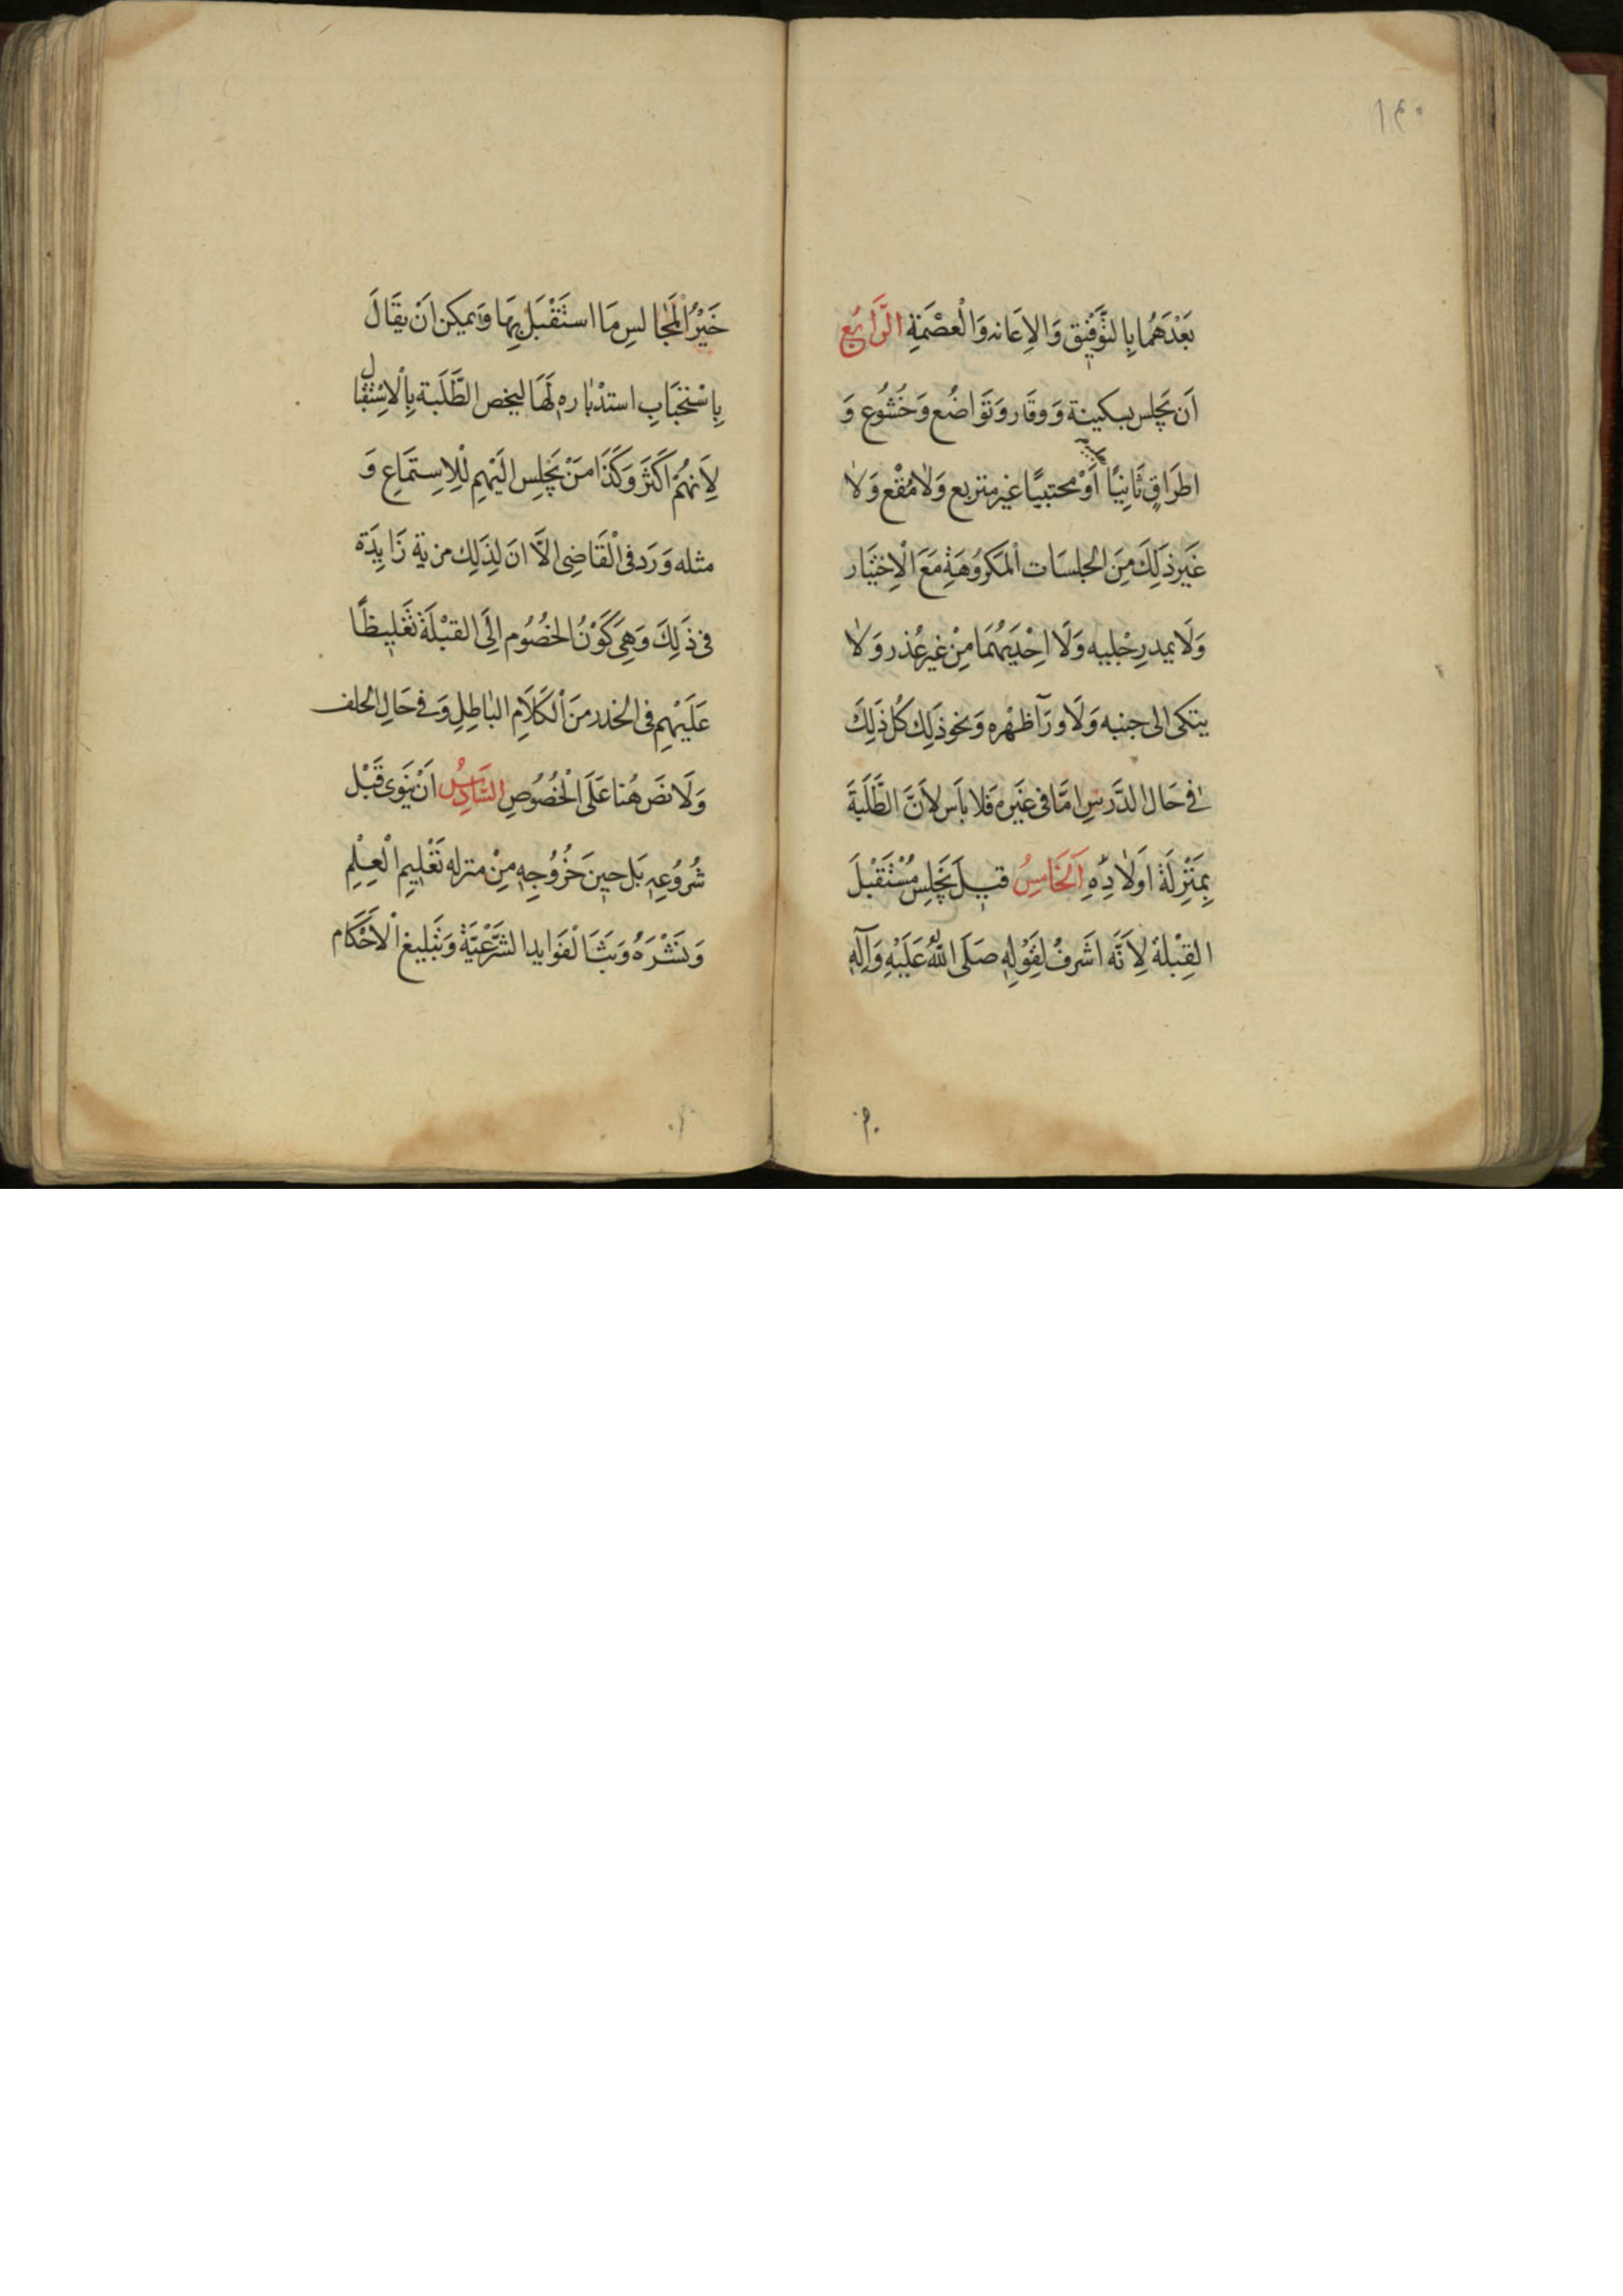 ١٤٠
بَعْدَهُما بِالتَّوفِيق وَالاِعَانه وَالْعصْمَةِ الرَّابَع
اَن يَجلِس بسكينة وَ وقَار وَتَوَاضُع وَخُشُوع وَ
اطرَاقٍ ثَانِيًا اَوْ محتبيًا غير متربع وَلاٰ مُقْع وَلاٰ
غَير ذَلِكَ مِنَ الجلسَات اْلمَكرُوهَةِ مَعَ الْاِختيَار
وَلَا يمد رِجْليه وَلَا اِحْدَيهُمَا مِنْ غيرِ عُذر وَلاٰ
يتكى الى جنبه وَلَا ورَآ ظهْره وَنحو ذَلِك كُل ذَلِكَ
فِى حَال الدَّرسِ امَّا فى غيَرِه فَلا باَس لاَنَّ الطَّلَبَةَ
بِمَنْزِلَة اَولاٰدِهِ اَلخَامِسُ قيِلَ يَجْلِسُ مُسْتَقْبَلَ
القِبْلة لِاَنَّه اشَرفُ لِقَوْلِهِ صَلَى اللّٰهُ عَلَيْهِ وَآلِهِ
خَيْرُ الْمَجَالسِ مَا استَقْبَل بِهَا وَيمكِن اَنْ يقَالَ
بِاسْتحْبَابِ استدْبَاره لَهَا ليخص الطَّلَبَة بِالْاِسْتِقْبَال
لِاَنهُمْ اَكثَر وَكَذَا مَنْ يَجْلِس الَيْهِم لْلِاسِتمَاعِ وَ
مثله وَرَد فى الْقَاضِى الَّا انَ لِذَلِك مزية زَايِدَة
فى ذَلِكَ وَهِىَ كَوْنُ الخُصُوم اِلَى القبْلَة تَغْلِيظًا
عَلَيْهِم فى الحذر منَ اْلكَلَامِ البَاطِلِ وَفى حَالِ الحلف
وَلَا نصَ هُنا عَلَى الْخُصُوصِ السَّادِسُ اَنْ يَنوَى قَبْل
شُرُوُعِهِ بَل حينَ خُرُوُجِهِ مِنْ منزله تَعْليمِ الْعِلْمِ
وَنَشْرَهُ وَبَثَّ الْفَوَايد الشَّرْعِيَّة وَتَبْليغ الْاَحَكَام